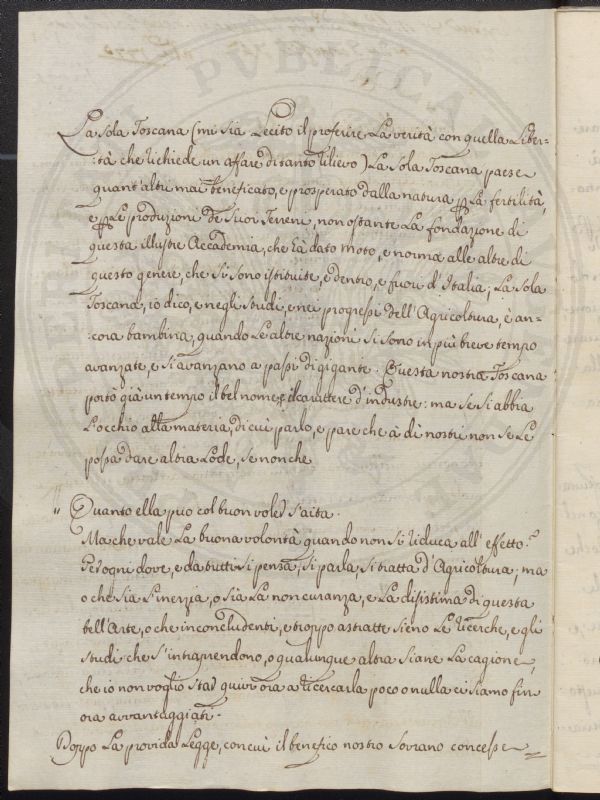 La sola Toscana (mi sia lecito il proferire la verità con quella liber=
:tà che richiede un affare di tanto rilievo) La sola Toscana paese
quant'altri mai beneficato, e prosperato dalla natura p la fertilità,
e p le produzione de suoi Terreni, non ostante la fondazione di
questa illustre Accademia, che hà dato moto, e norma alle altre di
questo genere, che si sono istituite, e dentro, e fuori d'Italia; La sola
Toscana, io dico, e negli studi, e nei progressi dell'Agricoltura, è an=
:cora bambina, quando le altre nazioni si sono in più breve tempo
avanzate, e si avanzano a passi di gigante. Questa nostra Toscana
portò già un tempo il bel nome, e il carattere d'industre: ma se si abbia
l'occhio alla materia, di cui parlo, e pare che à dì nostri non se le
possa dare altra lode, se non che
" Quanto ella può col buon voler s'aita.
Ma che vale la buona volontà quando non si riduca all'effetto?
Per ogni dove, e da tutti si pensa, si parla, si tratta d'Agricoltura, ma
o che sia l'inerzia, o sia la non curanza, e la disistima di questa
bell'Arte, o che inconcludenti, e troppo astratte sieno le ricerche, e gli
studi che s'intraprendono, o qualunque altra siane la cagione,
che io non voglio star quivi ora a ricercarla poco o nulla ci siamo fin
ora avvantaggiati.
Doppo la provida Legge, con cui il benefico nostro Sovrano concesse=